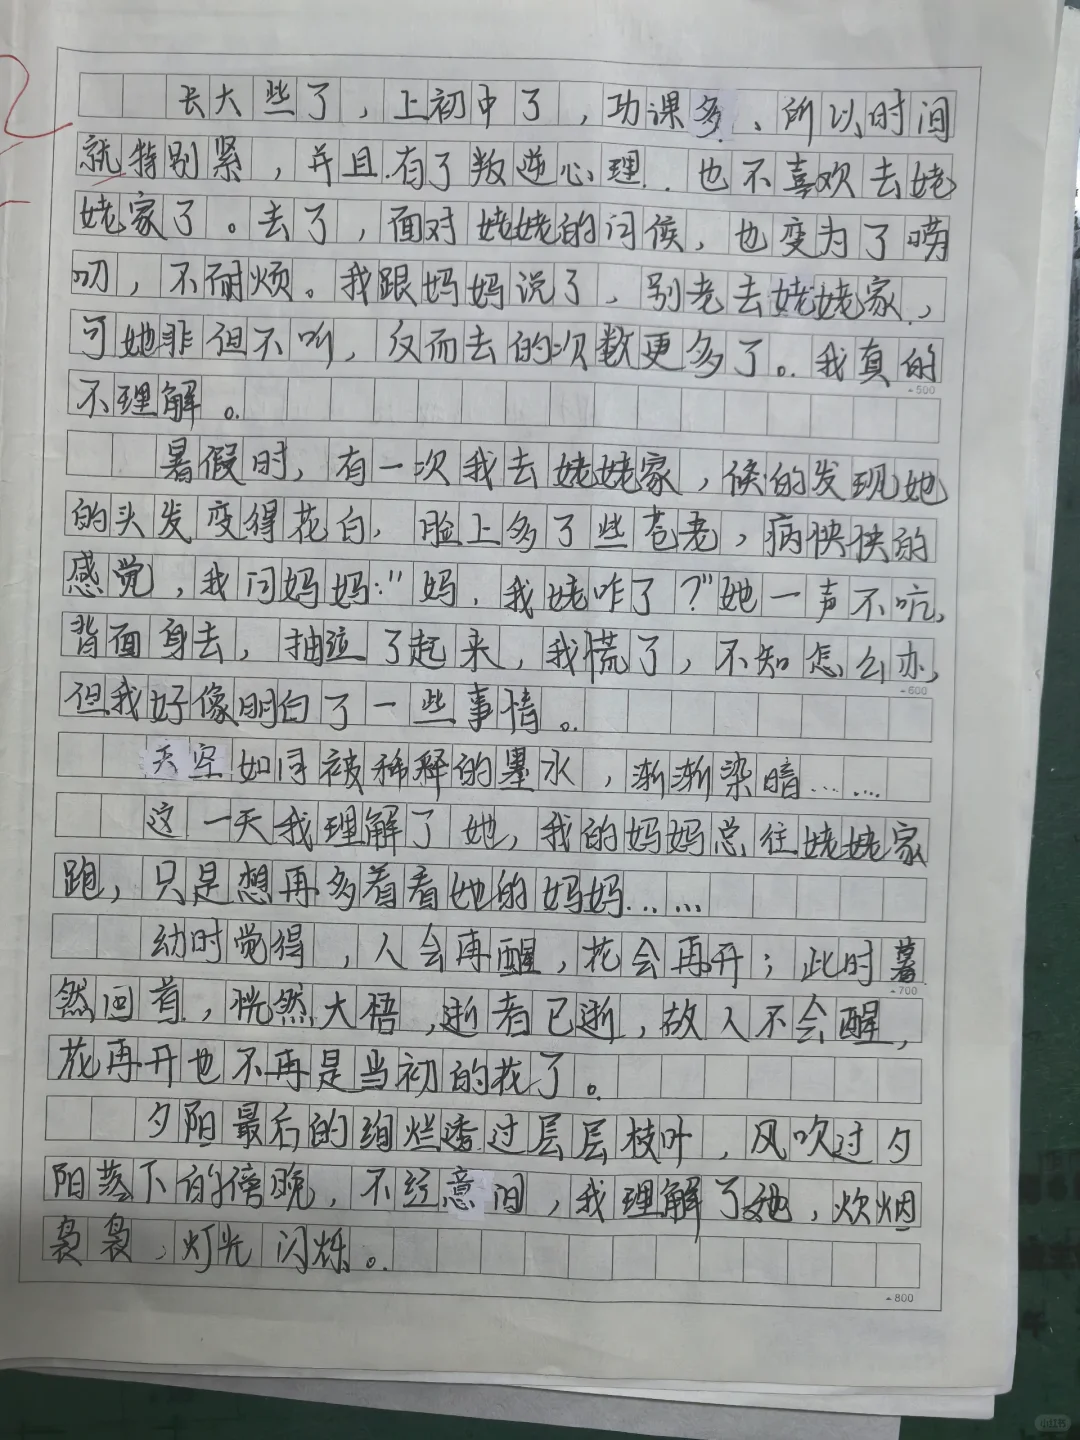 长大些了，上初中了，功课多、所以时间
就特别紧，并且有了叛逆心理．也不喜欢去姥
姥家了。去了，面对姥姥的问候，也变为了唠
叨，不耐烦。我跟妈妈说了，别老去姥姥家，
可她非但不听，反而去的次数更多了。我真的
不理解。
-500
暑假时，有一次我去姥姥家，候的发现她
的头发变得花白，脸上多了些苍老，病怏怏的
感觉，我问妈妈："妈，我姥咋了？"她一声不吭，
背面身去，抽泣了起来，我慌了，不知怎么办，
-600
但我好像明白了一些事情。
天空如同被稀释的墨水，渐渐染暗……
这一天我理解了她，我的妈妈总往姥姥家
跑，只是想再多看看她的妈妈……
幼时觉得，人会再醒，花会再开；此时蓦
-700
然回首，恍然大悟，逝者已逝，故人不会醒，
花再开也不再是当初的花了。
夕阳最后的绚烂透过层层枝叶，风吹过夕
阳落下的傍晚，不经意间，我理解了她，炊烟
袅袅，灯光闪烁。
-800
小红书